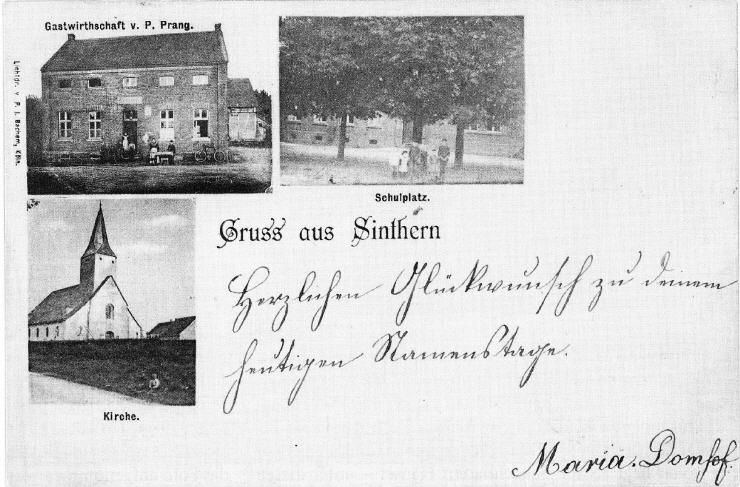 Gastwirthschaft v. P. Prang.
Lichtdr. v. P. J. Bachem, Köln.
Schulplatz.
Gruss aus Sinthern
Herzlichen Glückwunsch zu deinem
heutigen Namenstage.
Kirche.
Maria. Domhof.